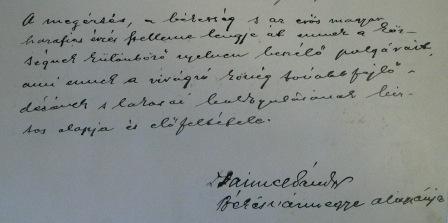 A megértés, a békesség s az erős magyar
hazafias érzés szelleme lengje át ennek a köz-
ségnek különböző nyelven beszélő polgárait,
ami ennek a virágzó község további fejlő-
désének s lakosai boldogulásának biz-
tos alapja és előfeltétele.
Dr Daimel Sándor
Békésvármegye alispánja